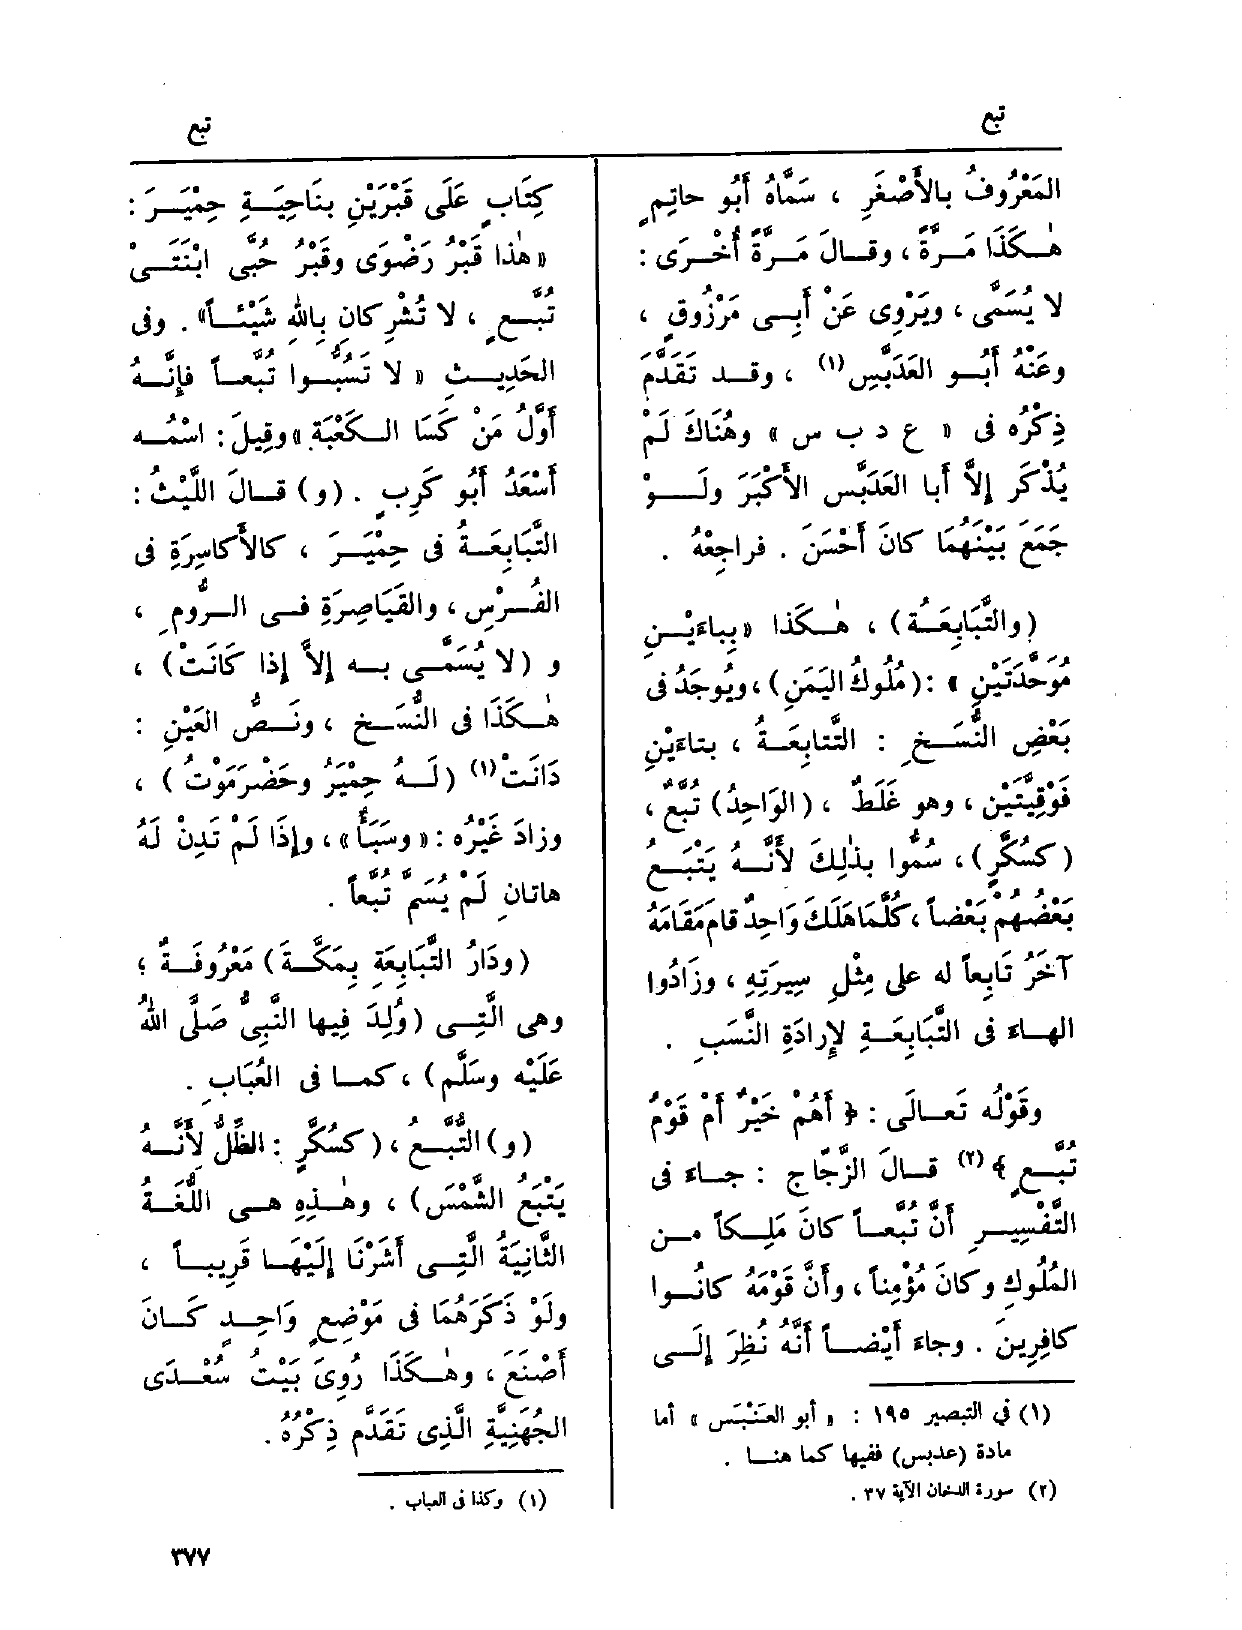 تبع
تبع
المَعْرُوفُ بالأَصْغَرِ ، سَمَّاهُ أَبُو حاتِمٍ
هٰـكَذَا مَـرَّةً ، وقـالَ مَـرَّةً أُخْـرَى :
لا يُسَمَّى ، ويَرْوِى عَنْ أَبِـى مَرْزُوقٍ ،
وعَنْهُ أَبُـو العَدَبَّسِ(١) ، وقـد تَقَدَّمَ
ذِكْرُه فى « ع د ب س » وهُنَاكَ لَمْ
يُذْكَر إِلاَّ أَبا العَدَبَّسِ الأَكْبَرَ ولَـوْ
جَمَعَ بَيْنَهُمَا كانَ أَحْسَنَ . فراجِعْهُ .
(والتَّبَابِعَـةُ) ، هٰـكَذا «بِباءَيْـنِ
مُوَحَّدَتَيْنِ » :(مُلُوكُ اليَمَنِ)،ويُوجَدُ فى
بَعْضِ النُّسَـخِ : التَّتابِعَـةُ ، بتاءَيْنِ
فَوْقِيَّتَيْنِ ، وهو غَلَطٌ ، (الوَاحِدُ) تُبَّعٌ ،
(كسُكَّرٍ) ، سُمُّوا بذٰلِكَ لأَنَّـهُ يَتْبَـع
بَعْضُهُمْ بَعْضاً ، كُلَّمَا هَلَكَ وَاحِدٌ قامَ مَقَامَهُ
آخَرُ تَابِعاً له على مِثْلِ سِيرَتِهِ ، وزَادُوا
الهـاءَ فى التَّبَابِعَـةِ لإِرادَةِ النَّسَبِ .
وقَوْلُه تَعـالَى : ﴿ أَهُمْ خَيْرٌ أَمْ قَوْمُ
تُبَّـعٍ ﴾(٢) قـالَ الزَّجّاج : جـاءَ فى
التَّفْسِيـرِ أَنَّ تُبَّعـاً كانَ مَلِـكاً مـن
المُلُوكِ وكانَ مُؤْمِناً ، وأَنَّ قَوْمَهُ كانُـوا
كافِرِينَ . وجاءَ أَيْضـاً أَنَّهُ نُظِرَ إِلَـى
(١) في التبصير ١٩٥ : « أبو العَنْبَس » أما
مادة (عدبس) ففيها كما هنـا .
(٢) سورة الدخان الآية ٣٧ .
كِتَابٍ عَلَى قَبْرَيْنِ بنَاحِيَـةِ حِمْيَـرَ :
« هٰذا قَبْرُ رَضْوَى وقَبْرُ حُبَّى ابْنَتَـىْ
تُبَّـعٍ ، لا تُشْرِكانِ بِاللهِ شَيْئـاً» . وفى
الحَدِيـثِ « لا تَسُبُّـوا تُبَّعـاً فإِنَّـهُ
أَوَّلُ مَنْ كَسَا الـكَعْبَةَ » وقِيلَ : اسْمُـه
أَسْعَدُ أَبُو كَرِبٍ . (و) قـالَ اللَّيْثُ :
التَّبَابِعَـةُ فى حِمْيَـرَ ، كالأَكاسِرَةِ فى
الفُـرْسِ ، والقَيَاصِرَةِ فـى الـرُّومِ ،
و (لا يُسَمَّـى بـه إِلاَّ إِذا كَانَتْ) ،
هٰـكَذَا فى النُّسَـخِ ، ونَـصُّ العَيْنِ :
دَانَـتْ(١) (لَـهُ حِمْيَرُ وحَضْرَمَوْتُ) ،
وزادَ غَيْرُه : « وسَبَأُ » ، وإِذَا لَمْ تَدِنْ لَهُ
هاتانِ لَمْ يُسَمَّ تُبَّعاً .
(ودَارُ التَّبَابِعَةِ بِمَكَّـةَ) مَعْرُوفَـةٌ ؛
وهى الَّتِـى (وُلِدَ فِيها النَّبِىُّ صَلَّى اللهُ
عَلَيْه وسَلَّم) ، كمـا فى العُبَابِ .
(و) التُّبَّـع ، (كسُكَّرٍ : الظِّلُّ لأَنَّـهُ
يَتْبَعُ الشَّمْسَ) ، وهٰـذِهِ هـى اللُّغَـةُ
الثَّانِيَةُ الَّتِـى أَشَرْنَا إِلَيْهَـا قَرِيبـاً ،
ولَوْ ذَكَرَهُمَا فى مَوْضِعٍ وَاحِـدٍ كَـانَ
أَصْنَعَ ، وهٰـكَذَا رُوِىَ بَيْتُ سُعْـدَى
الجُهَنِيَّةِ الَّذِى تَقَدَّم ذِكْرُهُ .
(١) وكذا فى العباب .
٣٧٧